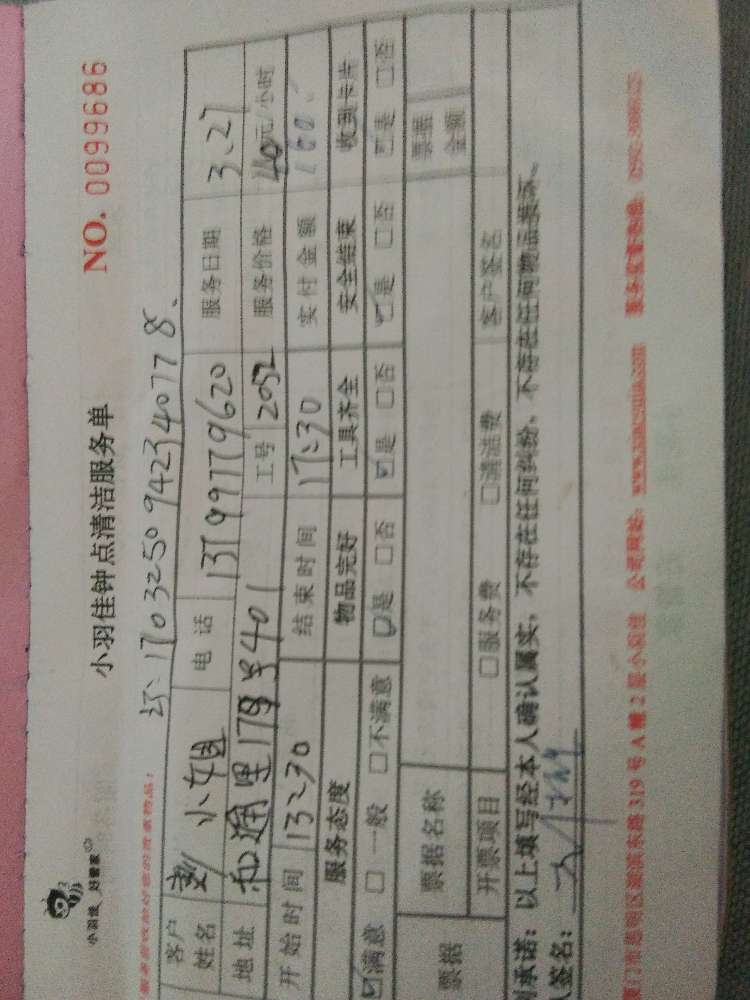 小羽佳 好管家
小羽佳钟点清洁服务单 NO. 0099686
170325094234077 8
客户姓名 小姐 电话 13799779620 服务日期 3.27
地址 和通里178号401 工号 2052 服务价格 40元/小时
开始时间 13:30 结束时间 17:30 实付金额 160.
服务态度 物品完好 工具齐全 安全结束 收到卡片
☑满意 □一般 □不满意 ☑是 □否 ☑是 □否 ☑是 □否 ☑是 □否
票据 票据名称 票据金额
开票项目 □服务费 □清洁费 客户签名
承诺：以上填写经本人确认属实，不存在任何纠纷，不存在任何物品损坏。
签名：
厦门市思明区湖滨东路319号A幢2层小羽佳 公司网站：